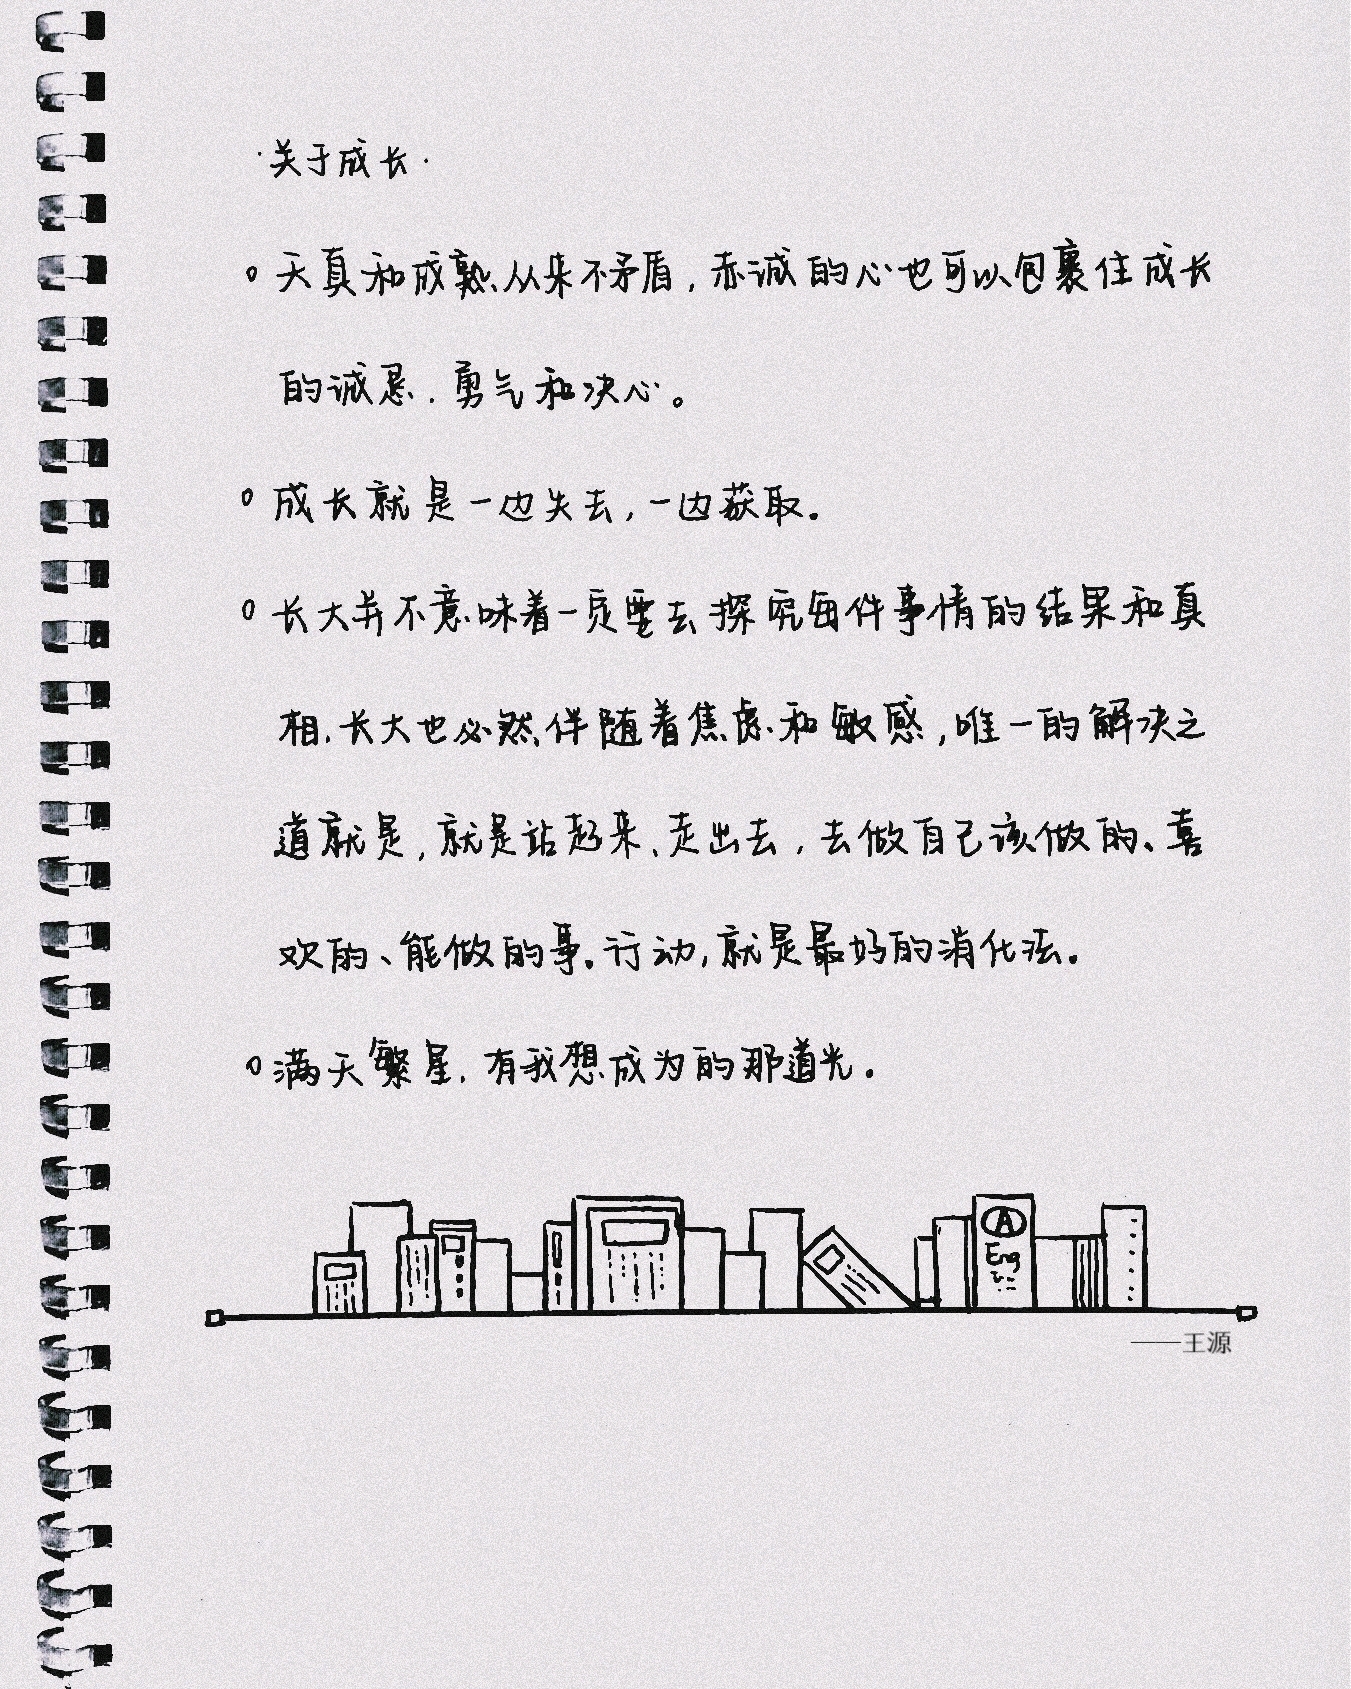 ·关于成长·
天真和成熟从来不矛盾，赤诚的心也可以包裹住成长
的诚恳、勇气和决心。
成长就是一边失去，一边获取。
长大并不意味着一定要去探究每件事情的结果和真
相，长大也必然伴随着焦虑和敏感，唯一的解决之
道就是，就是站起来、走出去，去做自己该做的、喜
欢的、能做的事。行动，就是最好的消化法。
满天繁星，有我想成为的那道光。
A
Eng
——王源